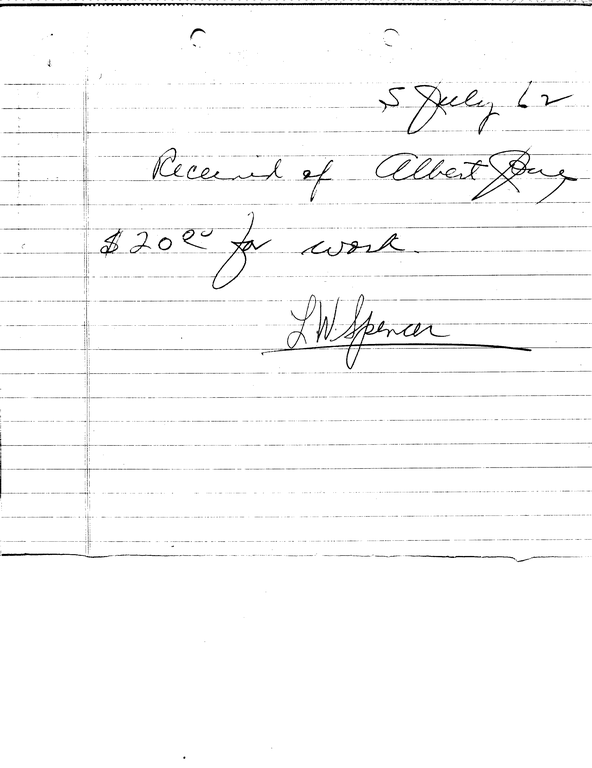 5 July 62
Received of Albert
$20.00 for work.
L W Spencer